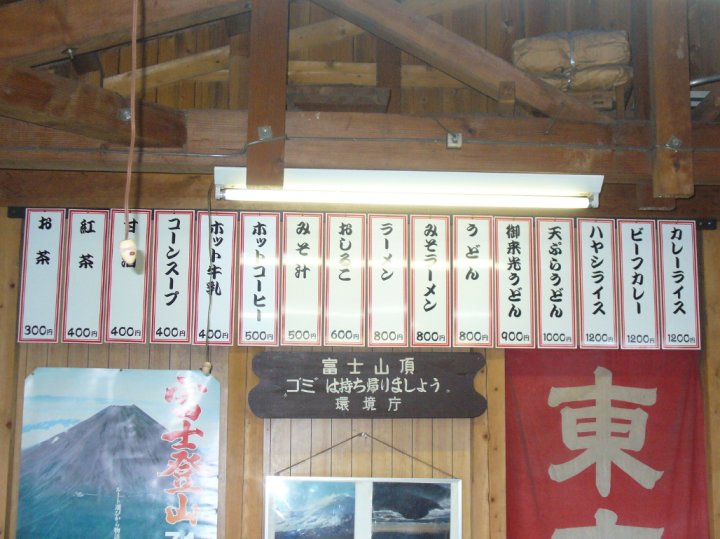 カレーライス 1200円
ビーフカレー 1200円
ハヤシライス 1200円
天ぷらうどん 1000円
御来光うどん 900円
うどん 800円
みそラーメン 800円
ラーメン 800円
おしるこ 600円
みそ汁 500円
ホットコーヒー 500円
ホット牛乳 400円
コーンスープ 400円
甘酒 400円
紅茶 400円
お茶 300円
富士山頂
"ゴミ"は持ち帰りましょう。
環境庁
富士登山
東